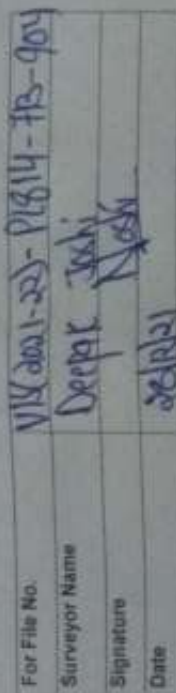 For File No. VIS(2021-22)-PL814-713-904
Surveyor Name Deepak Joshi
Signature DJoshi
Date 28/12/21